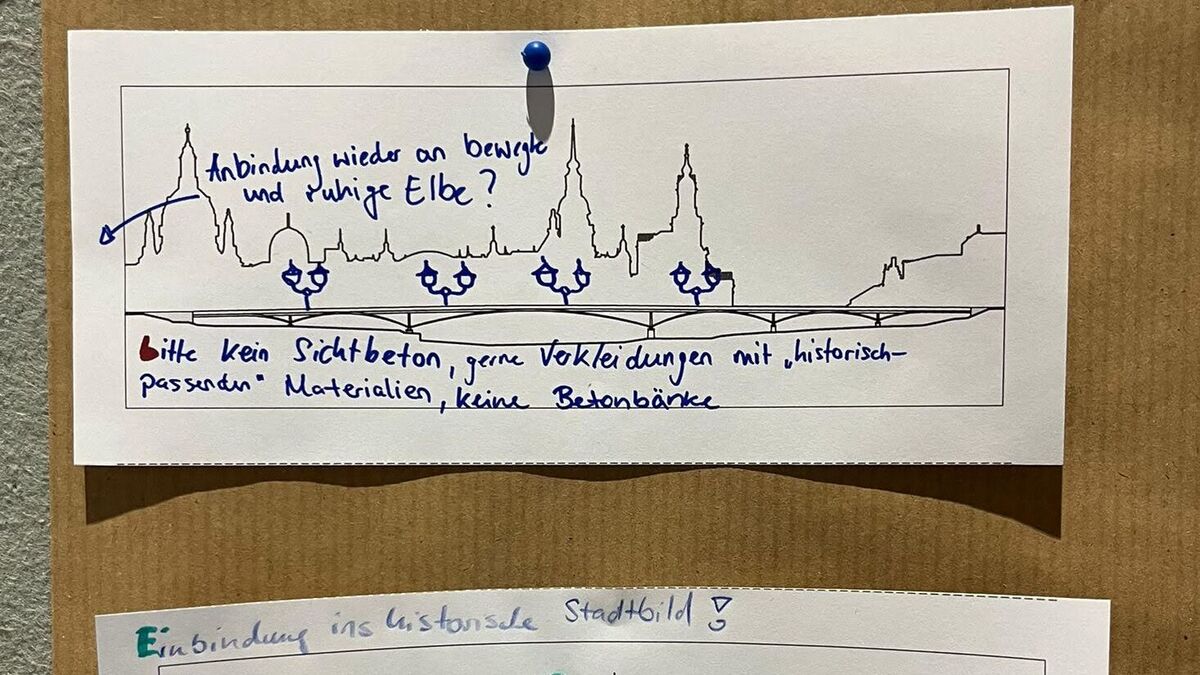 Anbindung wieder an bewegte
und ruhige Elbe?
bitte kein Sichtbeton, gerne Verkleidungen mit „historisch-
passenden" Materialien, keine Betonbänke
Einbindung ins historische Stadtbild!